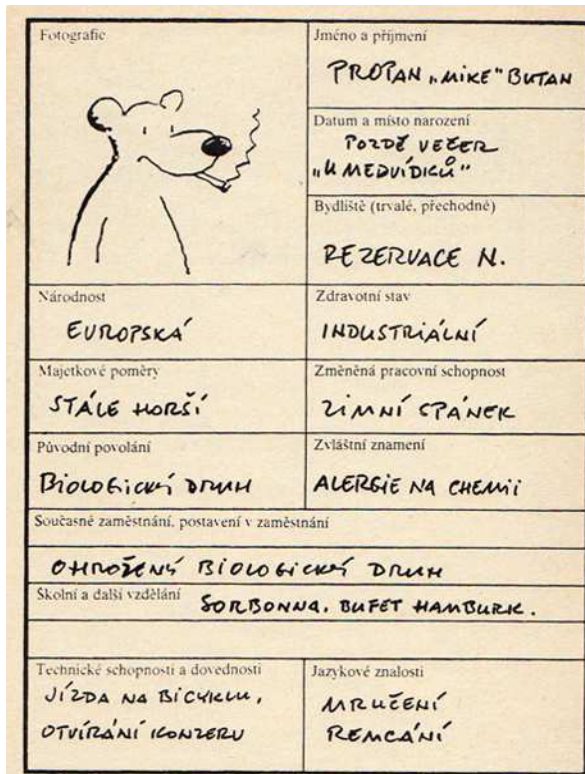 Fotografie
Jméno a příjmení
PROPAN „MIKE" BUTAN
Datum a místo narození
POZDĚ VEČER
„U MEDVÍDKŮ"
Bydliště (trvalé, přechodné)
REZERVACE N.
Národnost
EVROPSKÁ
Zdravotní stav
INDUSTRIÁLNÍ
Majetkové poměry
STÁLE HORŠÍ
Změněná pracovní schopnost
ZIMNÍ SPÁNEK
Původní povolání
BIOLOGICKÝ DRUH
Zvláštní znamení
ALERGIE NA CHEMII
Současné zaměstnání, postavení v zaměstnání
OHROŽENÝ BIOLOGICKÝ DRUH
Školní a další vzdělání
SORBONNA, BUFET HAMBURK.
Technické schopnosti a dovednosti
JÍZDA NA BICYKLU,
OTVÍRÁNÍ KONZERV
Jazykové znalosti
MRUČENÍ
REMCÁNÍ